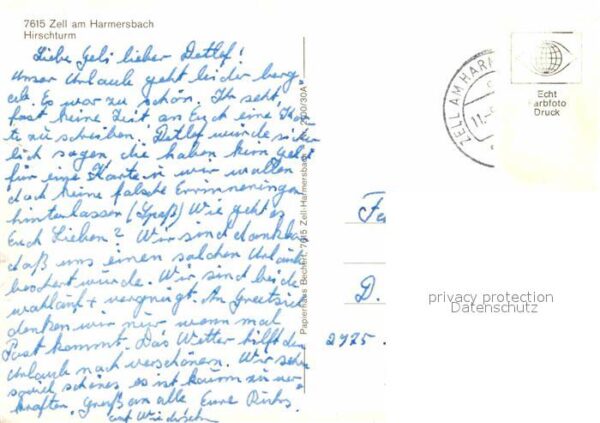 7615 Zell am Harmersbach
Hirschturm
Liebe Geli lieber Detlef!
Unser Urlaub geht leider berg
ab. Es war zu schön. Ihr seht,
fast keine Zeit an Euch eine Kar
te zu schreiben. Detlef würde sicher
lich sagen, die haben kein Geld
für eine Karte u wir wollen
doch keine falsche Erinnerungen
hinterlassen (Spaß) Wie geht es
Euch Lieben? Wir sind dankbar
daß uns einen solchen Urlaub
beschert wurde. Wir sind beide
wohlauf + vergnügt. An Greetsiel
denken wir nur wenn mal
Post kommt. Das Wetter hilft den
Urlaub noch verschönen. Wir sehen
soviel schönes es ist kaum zu ver
kraften. Gruß an alle Eure
auf Wiedersehn
Papierhaus Bechert, 7615 Zell-Harmersbach
ZELL AM HARM
11.
Echt
Farbfoto
Druck
D.
privacy protection
Datenschutz